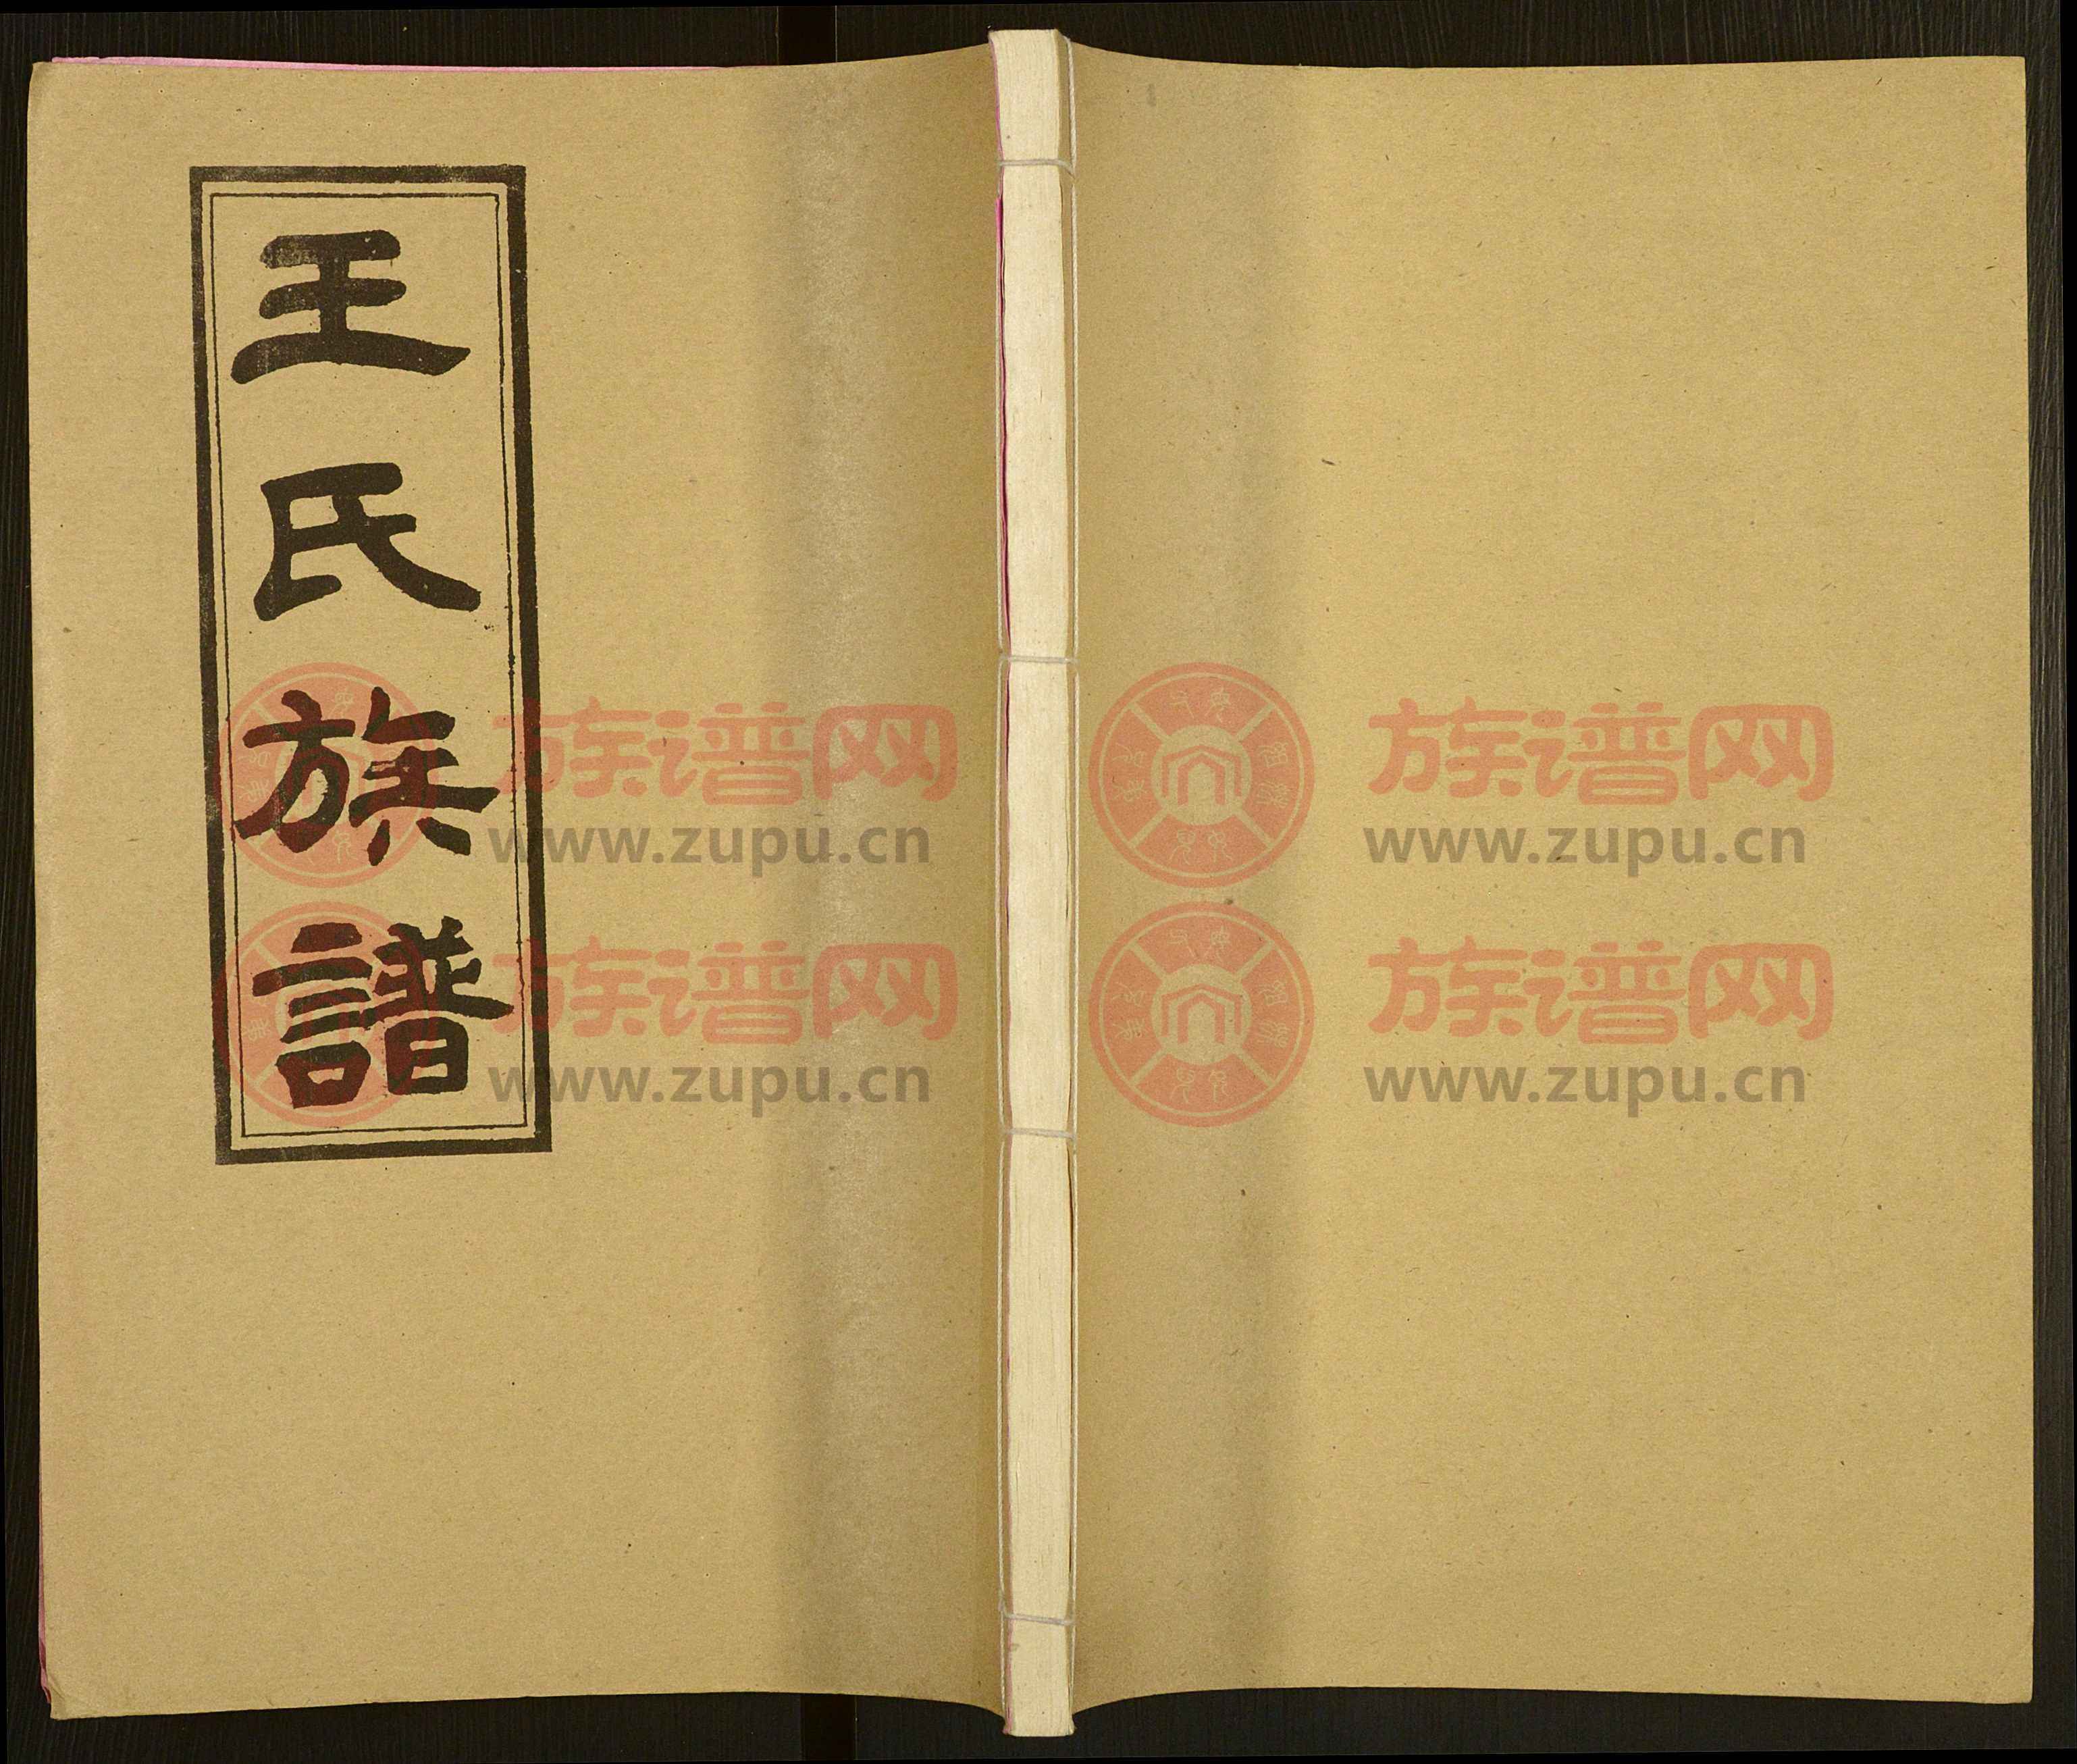 王氏族譜
族谱网
www.zupu.cn
族谱网
www.zupu.cn
族谱网
www.zupu.cn
族谱网
www.zupu.cn